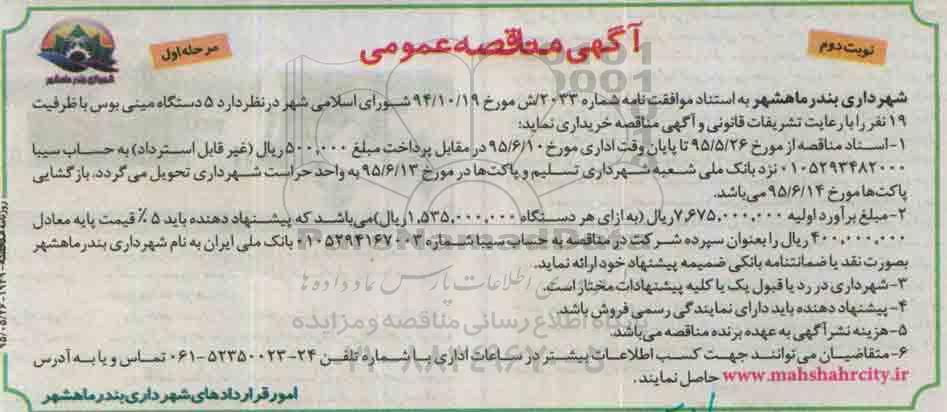 نوبت دوم
آگهی مناقصه عمومی
مرحله اول
شهرداری بندر ماهشهر
شهرداری بندرماهشهر به استناد موافقت نامه شماره ۲۰۳۳/ش مورخ ۹۴/۱۰/۱۹ شورای اسلامی شهر در نظر دارد ۵ دستگاه مینی بوس با ظرفیت
۱۹ نفر را با رعایت تشریفات قانونی و آگهی مناقصه خریداری نماید:
۱- اسناد مناقصه از مورخ ۹۵/۵/۲۶ تا پایان وقت اداری مورخ ۹۵/۶/۱۰ در مقابل پرداخت مبلغ ۵۰۰,۰۰۰ ریال (غیر قابل استرداد) به حساب سیبا
۰۱۰۵۲۹۳۴۸۲۰۰۰ نزد بانک ملی شعبه شهرداری تسلیم و پاکت‌ها در مورخ ۹۵/۶/۱۳ به واحد حراست شهرداری تحویل می‌گردد. بازگشایی
پاکت‌ها مورخ ۹۵/۶/۱۴ می‌باشد.
۲- مبلغ برآورد اولیه ۷,۶۷۵,۰۰۰,۰۰۰ ریال (به ازای هر دستگاه ۱,۵۳۵,۰۰۰,۰۰۰ ریال) می‌باشد که پیشنهاد دهنده باید ۵٪ قیمت پایه معادل
۴۰۰,۰۰۰,۰۰۰ ریال را بعنوان سپرده شرکت در مناقصه به حساب سیبا شماره ۰۱۰۵۲۹۴۱۶۷۰۰۳ بانک ملی ایران به نام شهرداری بندر ماهشهر
بصورت نقد یا ضمانتنامه بانکی ضمیمه پیشنهاد خود ارائه نماید.
۳- شهرداری در رد یا قبول یک یا کلیه پیشنهادات مختار است.
۴- پیشنهاد دهنده باید دارای نمایندگی رسمی فروش باشد.
۵- هزینه نشر آگهی به عهده برنده مناقصه می‌باشد.
۶- متقاضیان می‌توانند جهت کسب اطلاعات بیشتر در ساعات اداری با شماره تلفن ۲۴-۵۲۳۵۰۰۲۳-۰۶۱ تماس و یا به آدرس
www.mahshahrcity.ir حاصل نمایند.
امور قراردادهای شهرداری بندر ماهشهر